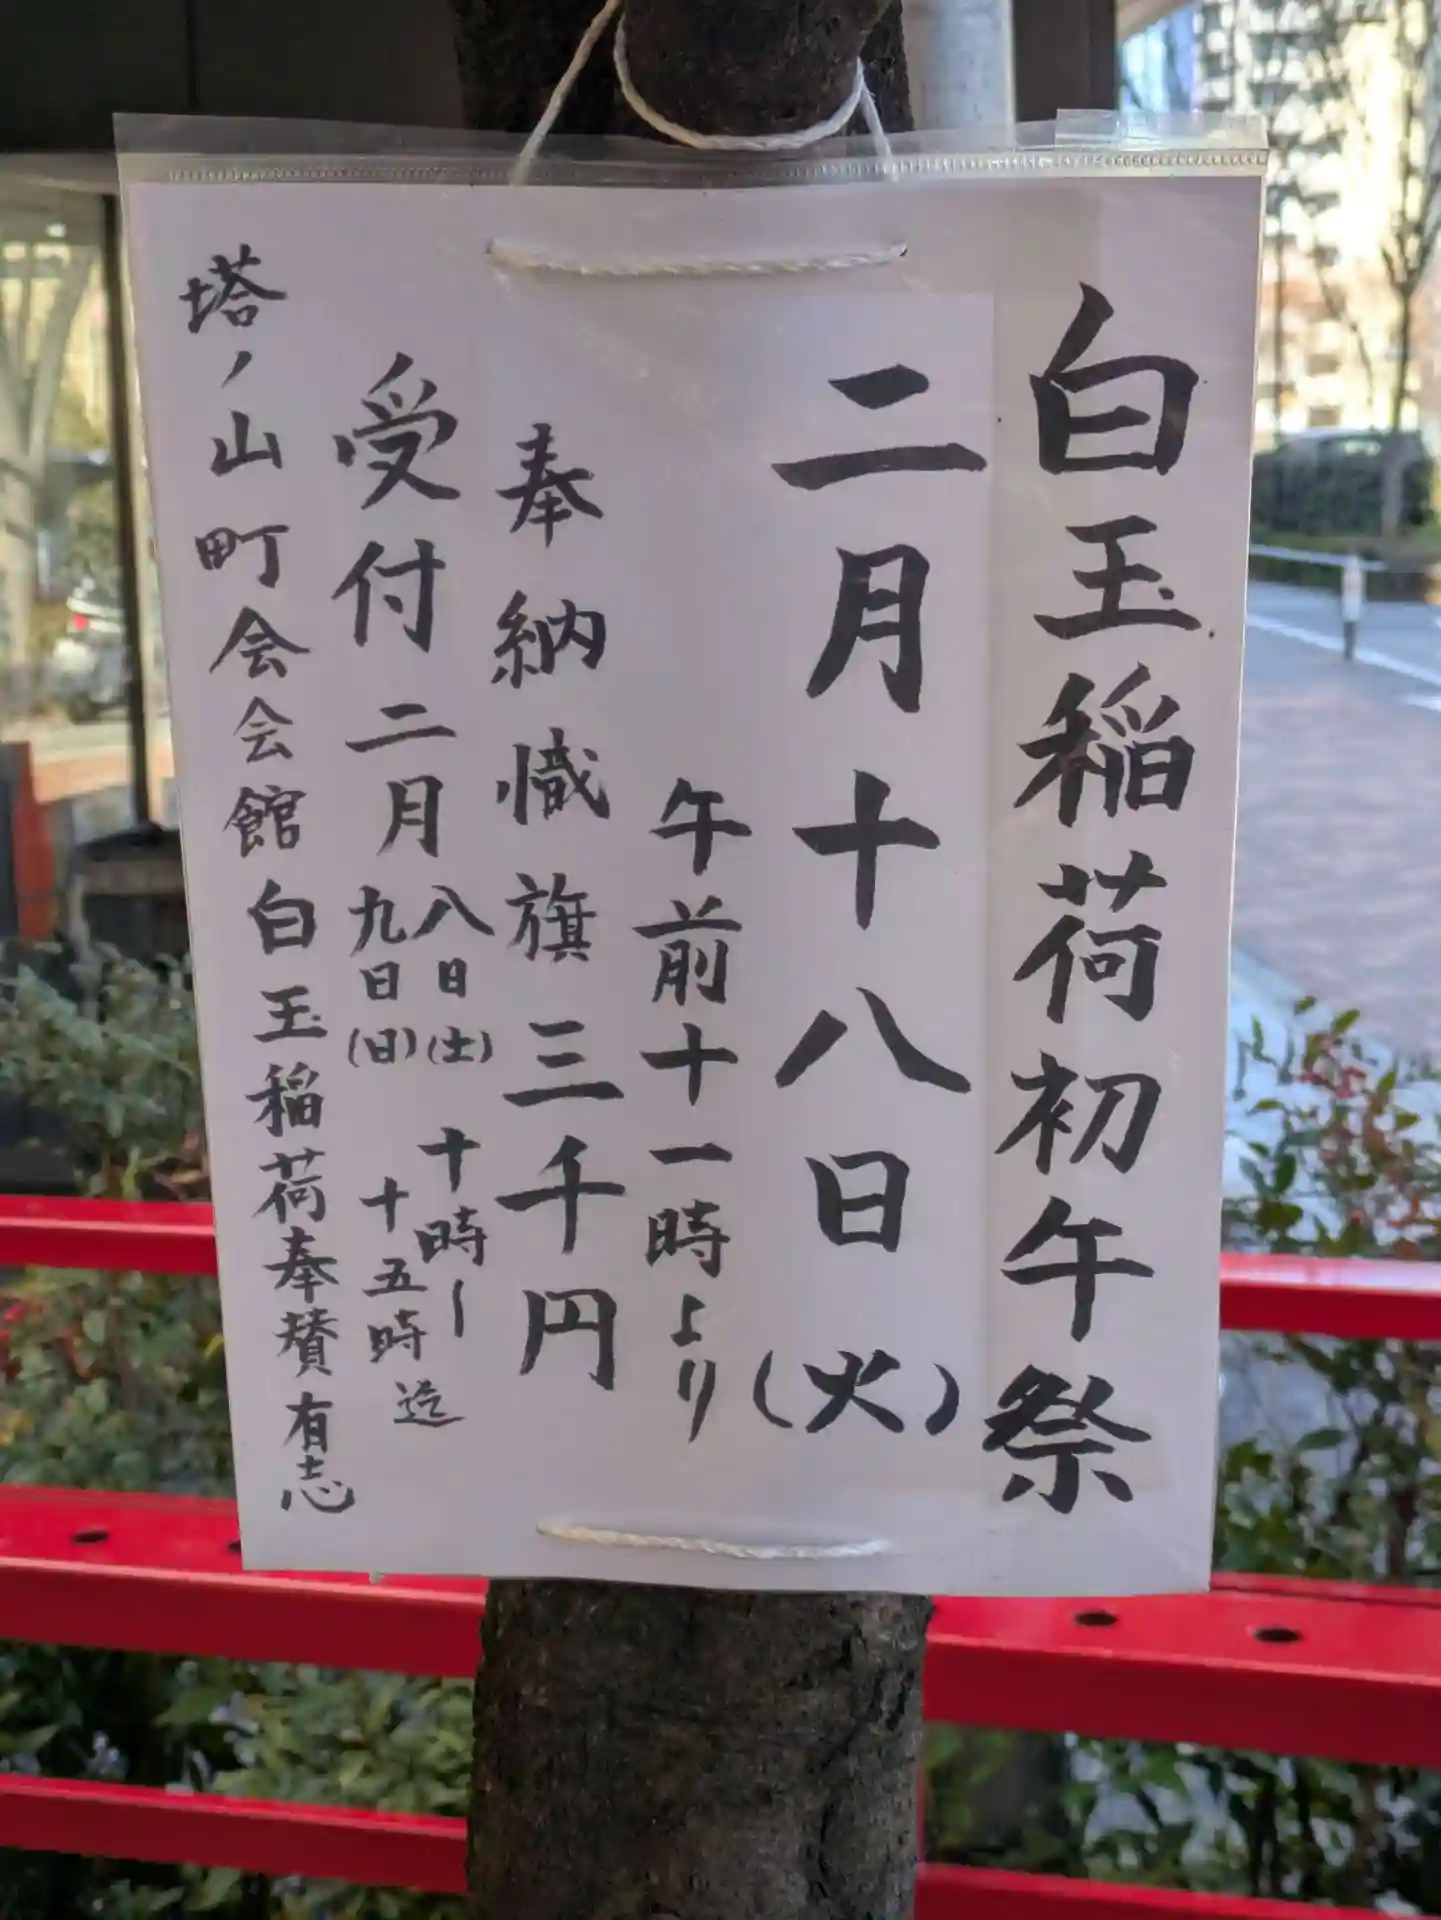 白玉稲荷初午祭
二月十八日(火)
午前十一時より
奉納幟旗三千円
受付二月八日(土)十時〜
九日(日)十五時迄
塔ノ山町会会館白玉稲荷奉賛有志